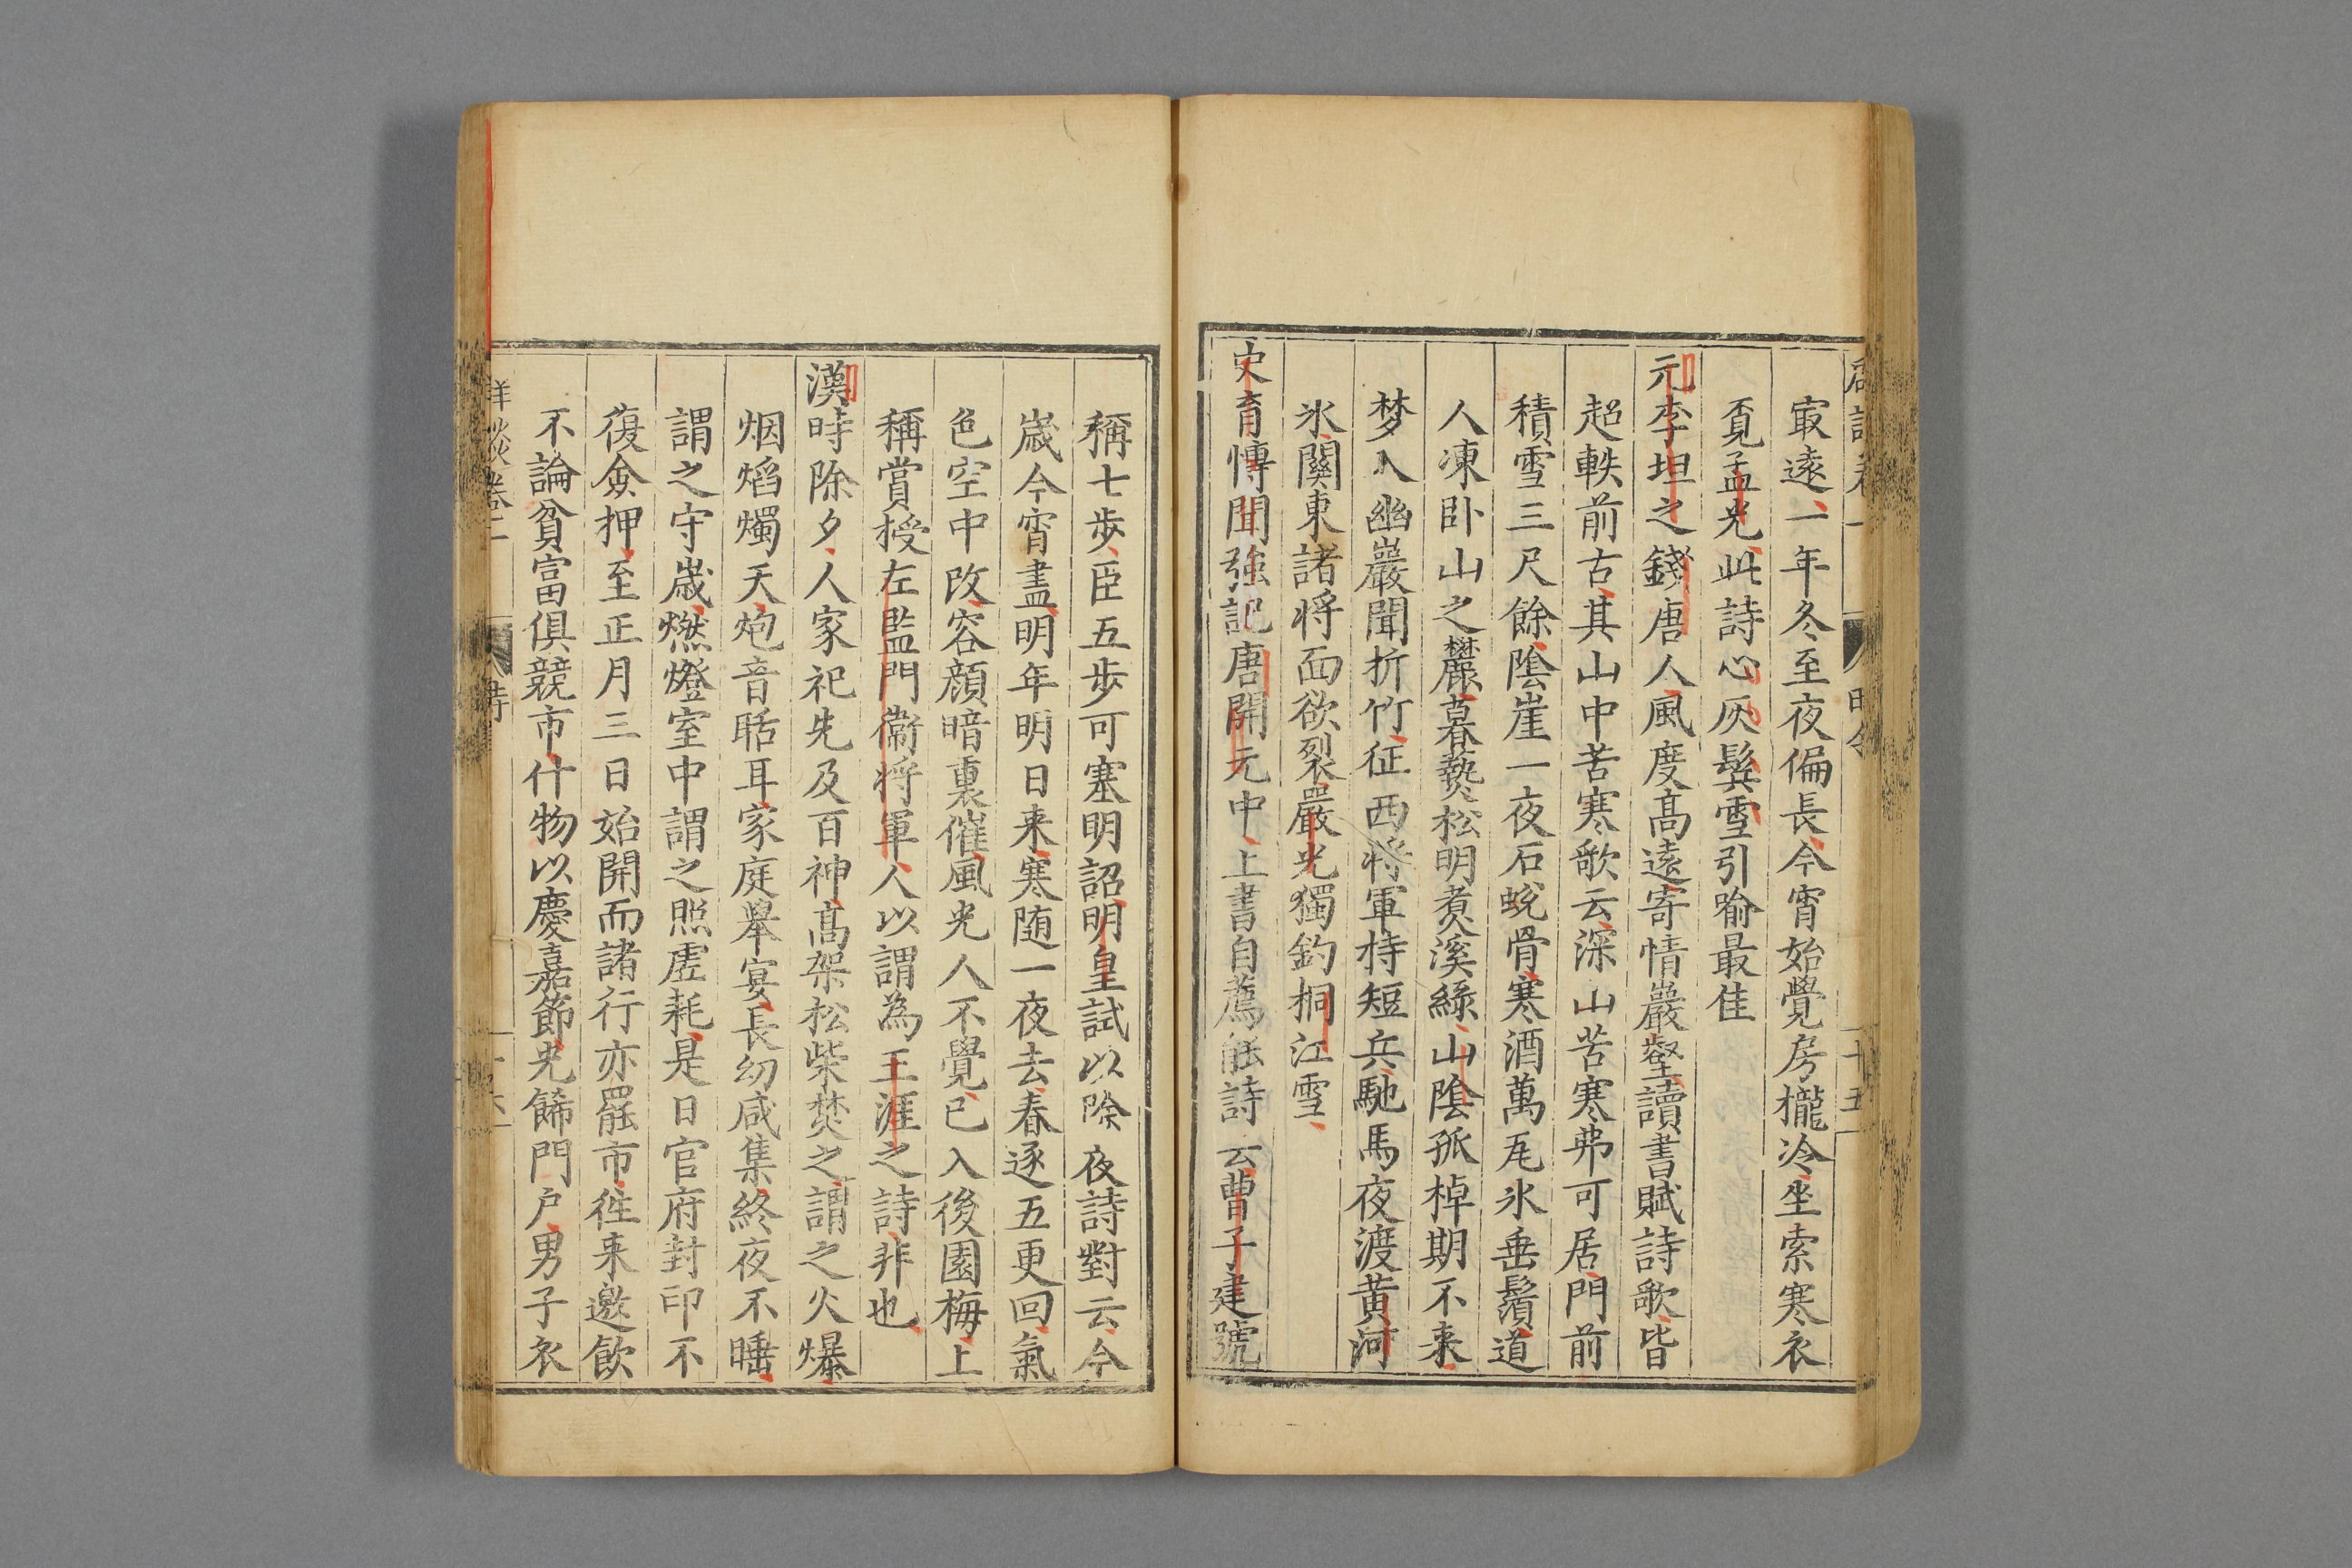 時令
十五
㝡遠一年冬至夜偏長今宵始覺房櫳冷坐索寒衣
覔孟光此詩心灰鬂雪引喻最佳
元李坦之錢唐人風度髙遠寄情巖壑讀書賦詩歌皆
超軼前古其山中苦寒歌云深山苦寒弗可居門前
積雪三尺餘陰崖一夜石蛻骨寒酒萬瓦氷垂鬚道
人凍卧山之麓暮爇松明煮溪綠山陰孤棹期不来
梦入幽巖聞折竹征西将軍持短兵馳馬夜渡黄河
氷關東諸将面欲裂嚴光獨釣桐江雪
史育博聞強記唐開元中上書自薦能詩云曹子建號
稱七歩臣五歩可塞明詔明皇試以除夜詩對云今
歲今宵盡明年明日来寒随一夜去春逐五更回氣
色空中改容顔暗裏催風光人不覺已入後園梅上
稱賞授左監門衛将軍人以謂為王涯之詩非也
漢時除夕人家祀先及百神髙架松柴焚之謂之火爆
烟熖燭天炮音聒耳家庭舉宴長幼咸集終夜不睡
謂之守歲燃燈室中謂之照虗耗是日官府封印不
復僉押至正月三日始開而諸行亦罷市徃来邀飲
不論貧富俱競市什物以慶嘉節光餙門户男子衣
卷二